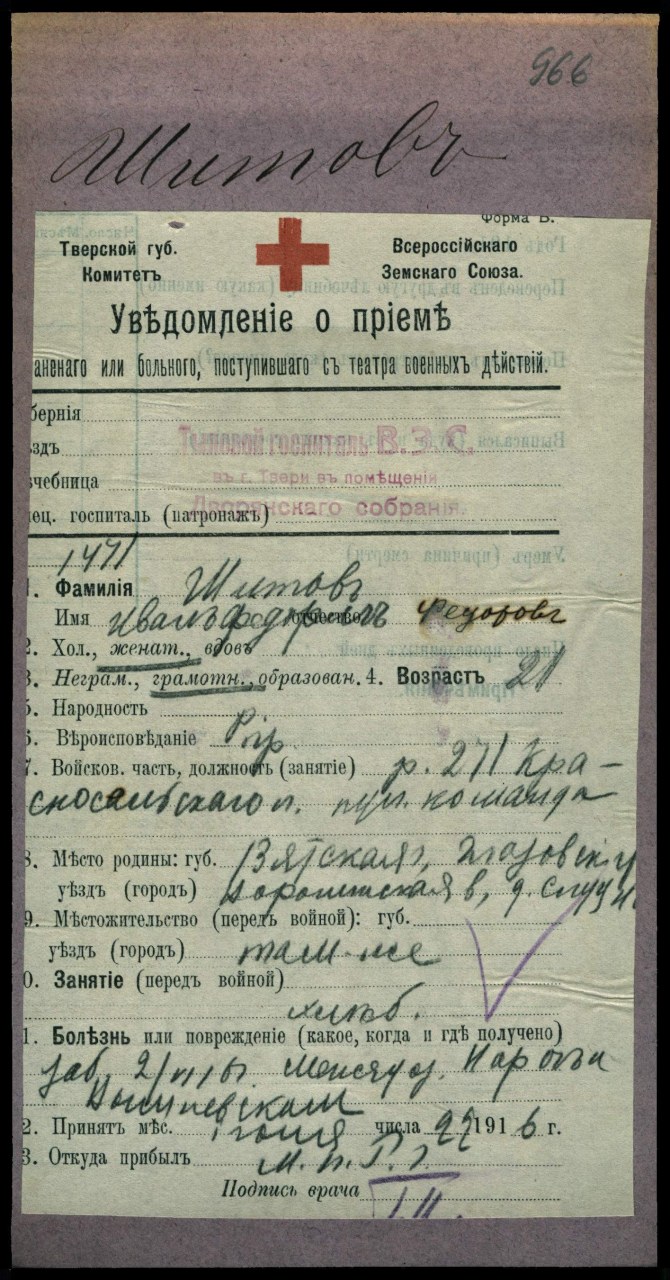 966
Шитовъ
Форма В.
Тверской губ.
Комитетъ
Всероссійскаго
Земскаго Союза.
Увѣдомленіе о пріемѣ
аненаго или больного, поступившаго съ театра военныхъ дѣйствій.
бернія
здъ
Тыловой госпиталь В.З.С.
въ г. Твери въ помѣщеніи
чебница
Дворянскаго собранія.
ец. госпиталь (патронажъ)
1471
1. Фамилія Шитовъ
Имя отчество Федоровъ
2. Хол., женат., вдовъ
3. Неграм., грамотн., образован. 4. Возрастъ 21
5. Народность р.
6. Вѣроисповѣданіе пр
7. Войсков. часть, должность (занятіе) р. 271 Кра-
сносельскаго п. пул. команда
8. Мѣсто родины: губ. Вятская, Глазовскій
уѣздъ (городъ) в, д.
9. Мѣстожительство (передъ войной): губ.
уѣздъ (городъ) там-же
0. Занятіе (передъ войной)
хлѣб.
1. Болѣзнь или поврежденіе (какое, когда и гдѣ получено)
заб. 2/VI 16
2. Принятъ мѣс. Іюня числа 22 1916 г.
3. Откуда прибылъ
Подпись врача